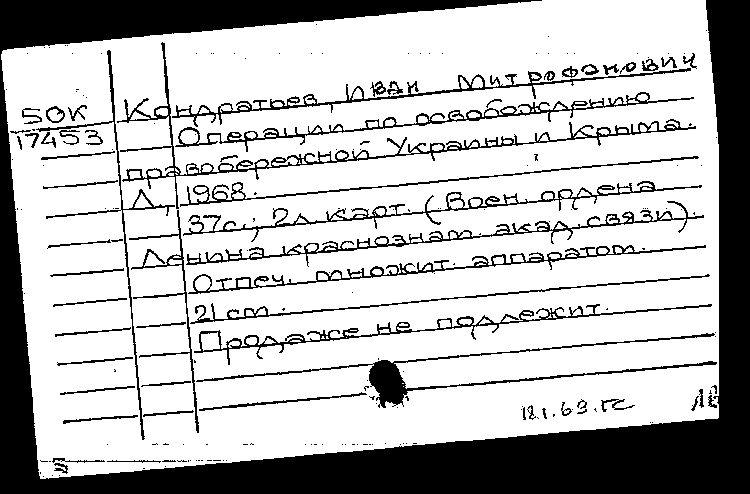 SOK Кондратьев, Иван Митрофанович
17453 Операции по освобождению
правобережной Украины и Крыма.
Л., 1968.
37с.; 2л карт. (Воен. ордена
Ленина краснознам. акад. связи).
Отпеч. множит. аппаратом.
21 cm.
Продаже не подлежит.